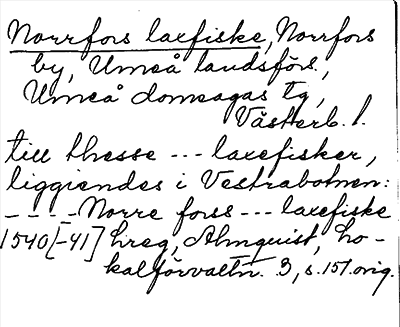 Norrfors laxfiske, Norrfors
by, Umeå landsförs.,
Umeå domsagas tg,
Västerb. l.
till thesse --- laxefisker,
liggiendes i Vestrabotnen:
---- Norre forss --- laxefiske
1540[-41] hreg, Almquist, Lo-
kalförvaltn. 3, s. 151. orig.